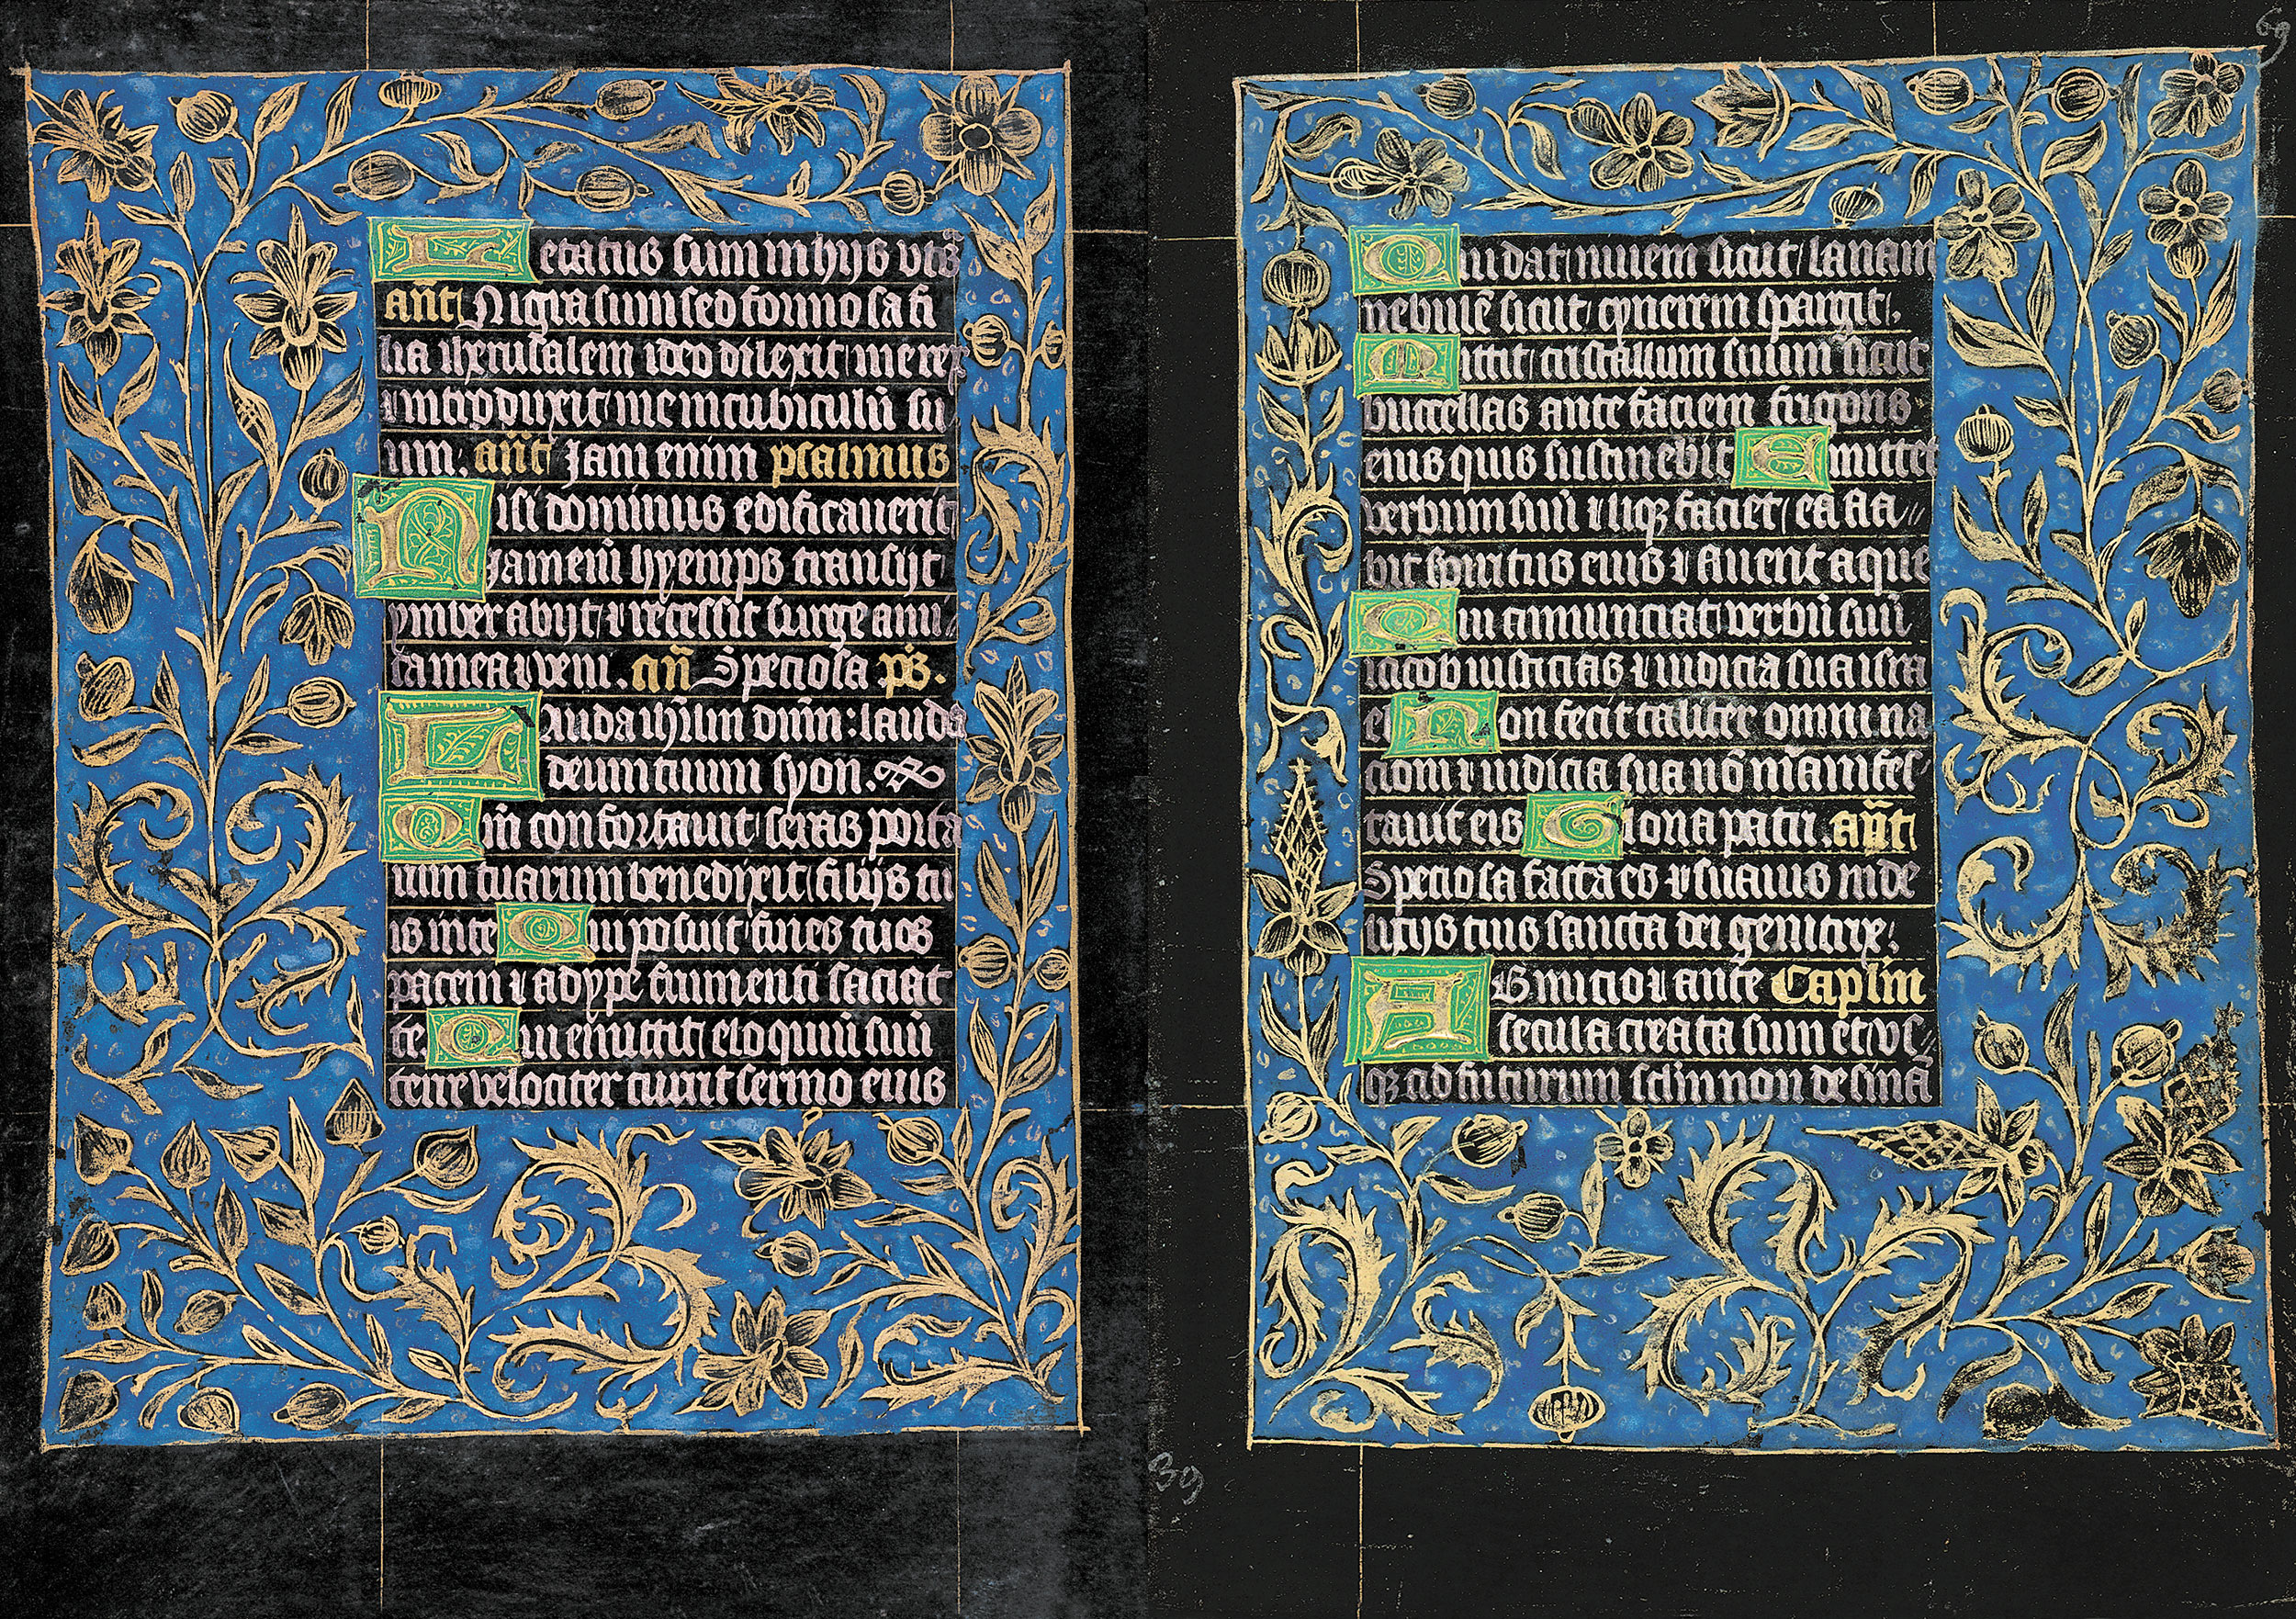 Letatus sum in hijs ut s̄
an̄t Nigra sum sed formosa fi
lia iherusalem ideo dilexit me rex
⁊ introduxit me in cubiculū su
um. an̄t Jam enim psalmus
Nisi dominus edificauerit
Jam eni̅ hyemps transijt
ymber abijt ⁊ recessit surge ami
ca mea ⁊ veni. an̄ Speciosa ps.
Lauda ihr̄lm dūm: lauda
deum tuum syon.
Qm̄ confortauit seras porta
rum tuarum benedixit filijs tu
is in te Qui posuit fines tuos
pacem ⁊ adype frumenti saciat
te Qui emittit eloquiū suū
terre velociter currit sermo eius
69
Qui dat niuem sicut lanam
nebulā sicut cynerem spargit.
Mittit cristallum suum sicut
buccellas ante faciem frigoris
eius quis sustinebit Emittet
verbum suū ⁊ liqꝫ faciet ea fla
bit spiritus eius ⁊ fluent aque
Qui annunciat verbū suū
iacob iusticias ⁊ iudicia sua isra
el Non fecit taliter omni na
cioni ⁊ iudicia sua nō manifes
tauit eis Gloria patri. an̄t
Speciosa facta es ⁊ suauis in de
licijs tuis sancta dei genitrix.
Ab inicio ⁊ ante Caplm
secula creata sum et vs
qꝫ ad futurum sclm non desinā
39